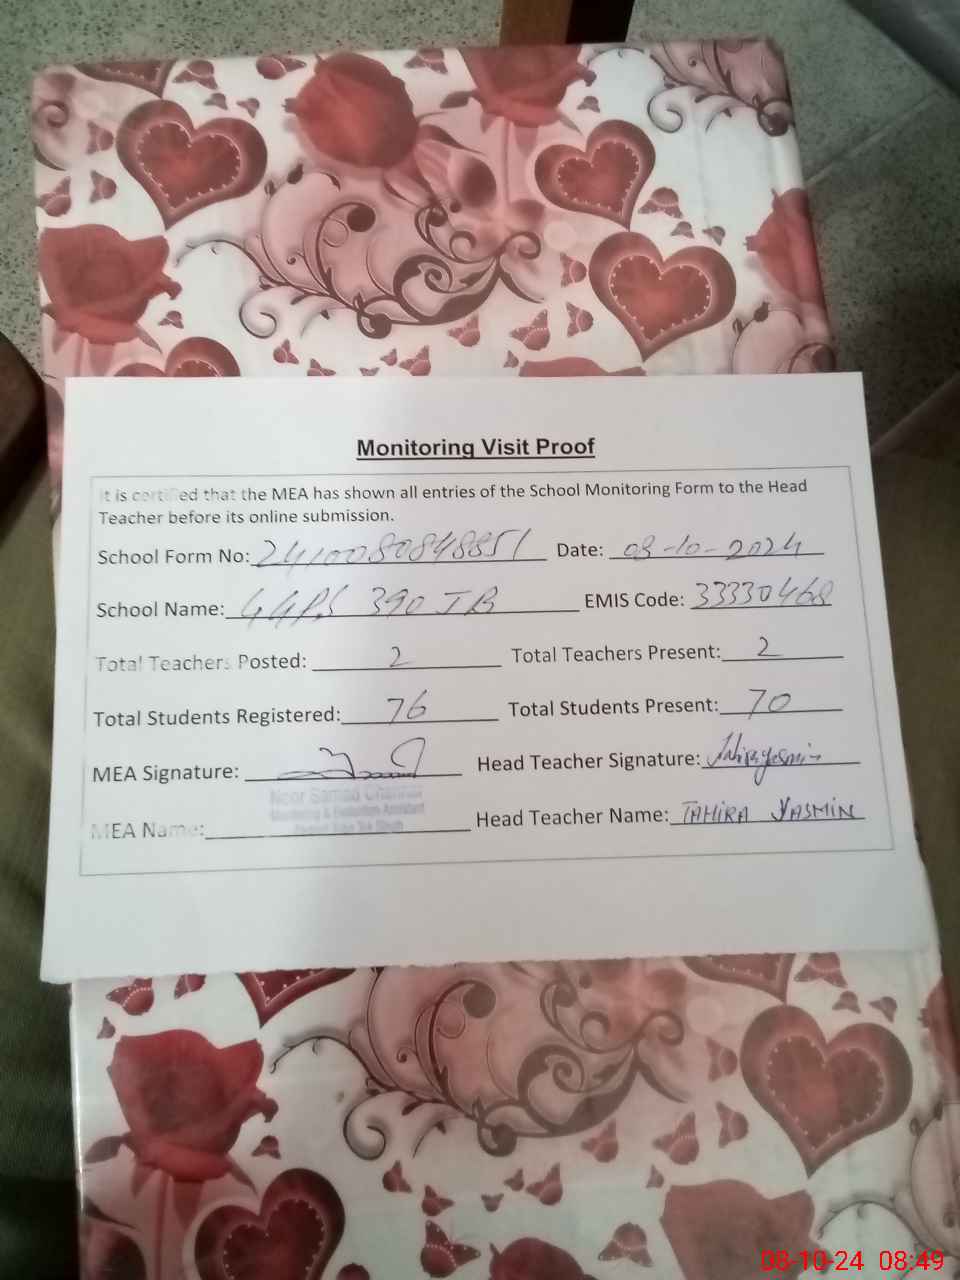 Monitoring Visit Proof
It is certified that the MEA has shown all entries of the School Monitoring Form to the Head
Teacher before its online submission.
School Form No: 2410080848851 Date: 08-10-2024
School Name: GGPS 390 JB EMIS Code: 33330468
Total Teachers Posted: 2 Total Teachers Present: 2
Total Students Registered: 76 Total Students Present: 70
MEA Signature: Head Teacher Signature:
Noor Samad
Monitoring & Evaluation Assistant
MEA Name: Head Teacher Name: TAHIRA YASMIN
08-10-24 08:49